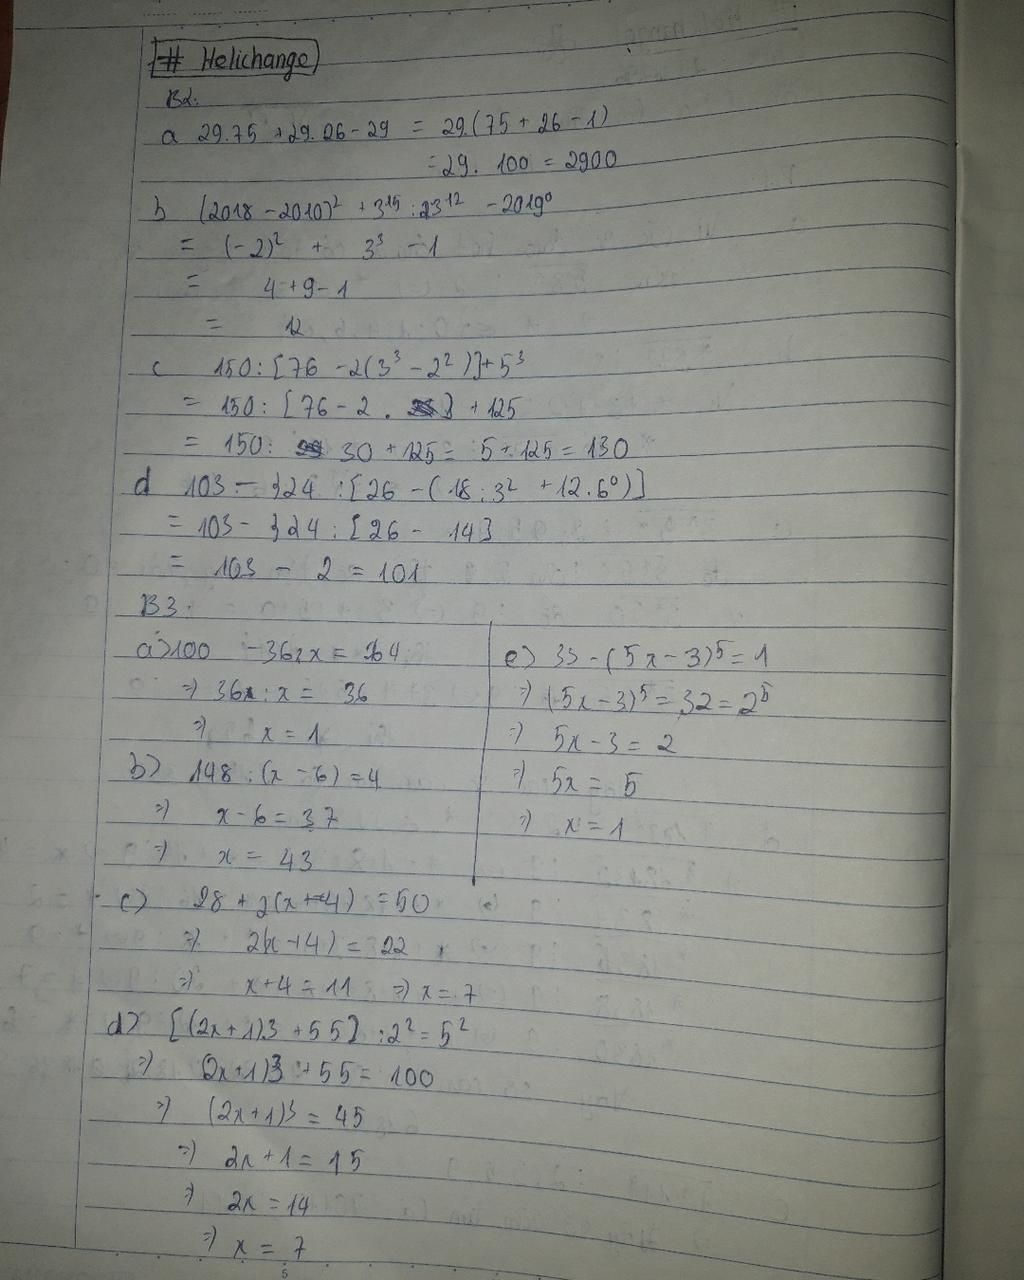 # Helichange
B2.
a 29.75 + 29.26 - 29 = 29.(75 + 26 - 1)
= 29. 100 = 2900
b (2018 - 2010)² + 3¹⁵ : 3¹² - 2019⁰
= (-2)² + 3³ - 1
= 4 + 9 - 1
= 12
c 150 : [76 - 2(3³ - 2²)] + 5³
= 150 : [76 - 2 . ] + 125
= 150 : 30 + 125 = 5 + 125 = 130
d 103 - }24 : [26 - (18 : 3² + 12.6⁰)]
= 103 - }24 : [26 - 14]
= 103 - 2 = 101
B3.
a> 100 - 36 : x = 64
=> 36 : x = 36
=> x = 1
b> 148 : (x - 6) = 4
=> x - 6 = 37
=> x = 43
e> 33 - (5x - 3)⁵ = 1
=> (5x - 3)⁵ = 32 = 2⁵
=> 5x - 3 = 2
=> 5x = 5
=> x = 1
c> 28 + 2(x + 4) = 50
=> 2(x + 4) = 22
=> x + 4 = 11 => x = 7
d> [(2x + 1)3 + 55] : 2² = 5²
=> (2x + 1)3 + 55 = 100
=> (2x + 1)3 = 45
=> 2x + 1 = 15
=> 2x = 14
=> x = 7
5